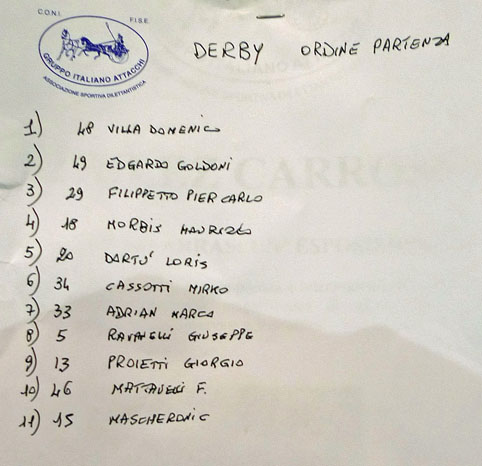 C.O.N.I.
F.I.S.E.
GRUPPO ITALIANO ATTACCHI
ASSOCIAZIONE SPORTIVA DILETTANTISTICA
DERBY ORDINE PARTENZA
1) 48 VILLA DOMENICO
2) 49 EDGARDO GOLDONI
3) 29 FILIPPETTO PIER CARLO
4) 18 MORBIS MAURIZIO
5) 20 DARTU' LORIS
6) 34 CASSOTTI MIRKO
7) 33 ADRIAN MARCO
8) 5 RAVANELLI GIUSEPPE
9) 13 PROIETTI GIORGIO
10) 46 MATTAVELLI F.
11) 15 MASCHERONI C
CARRO